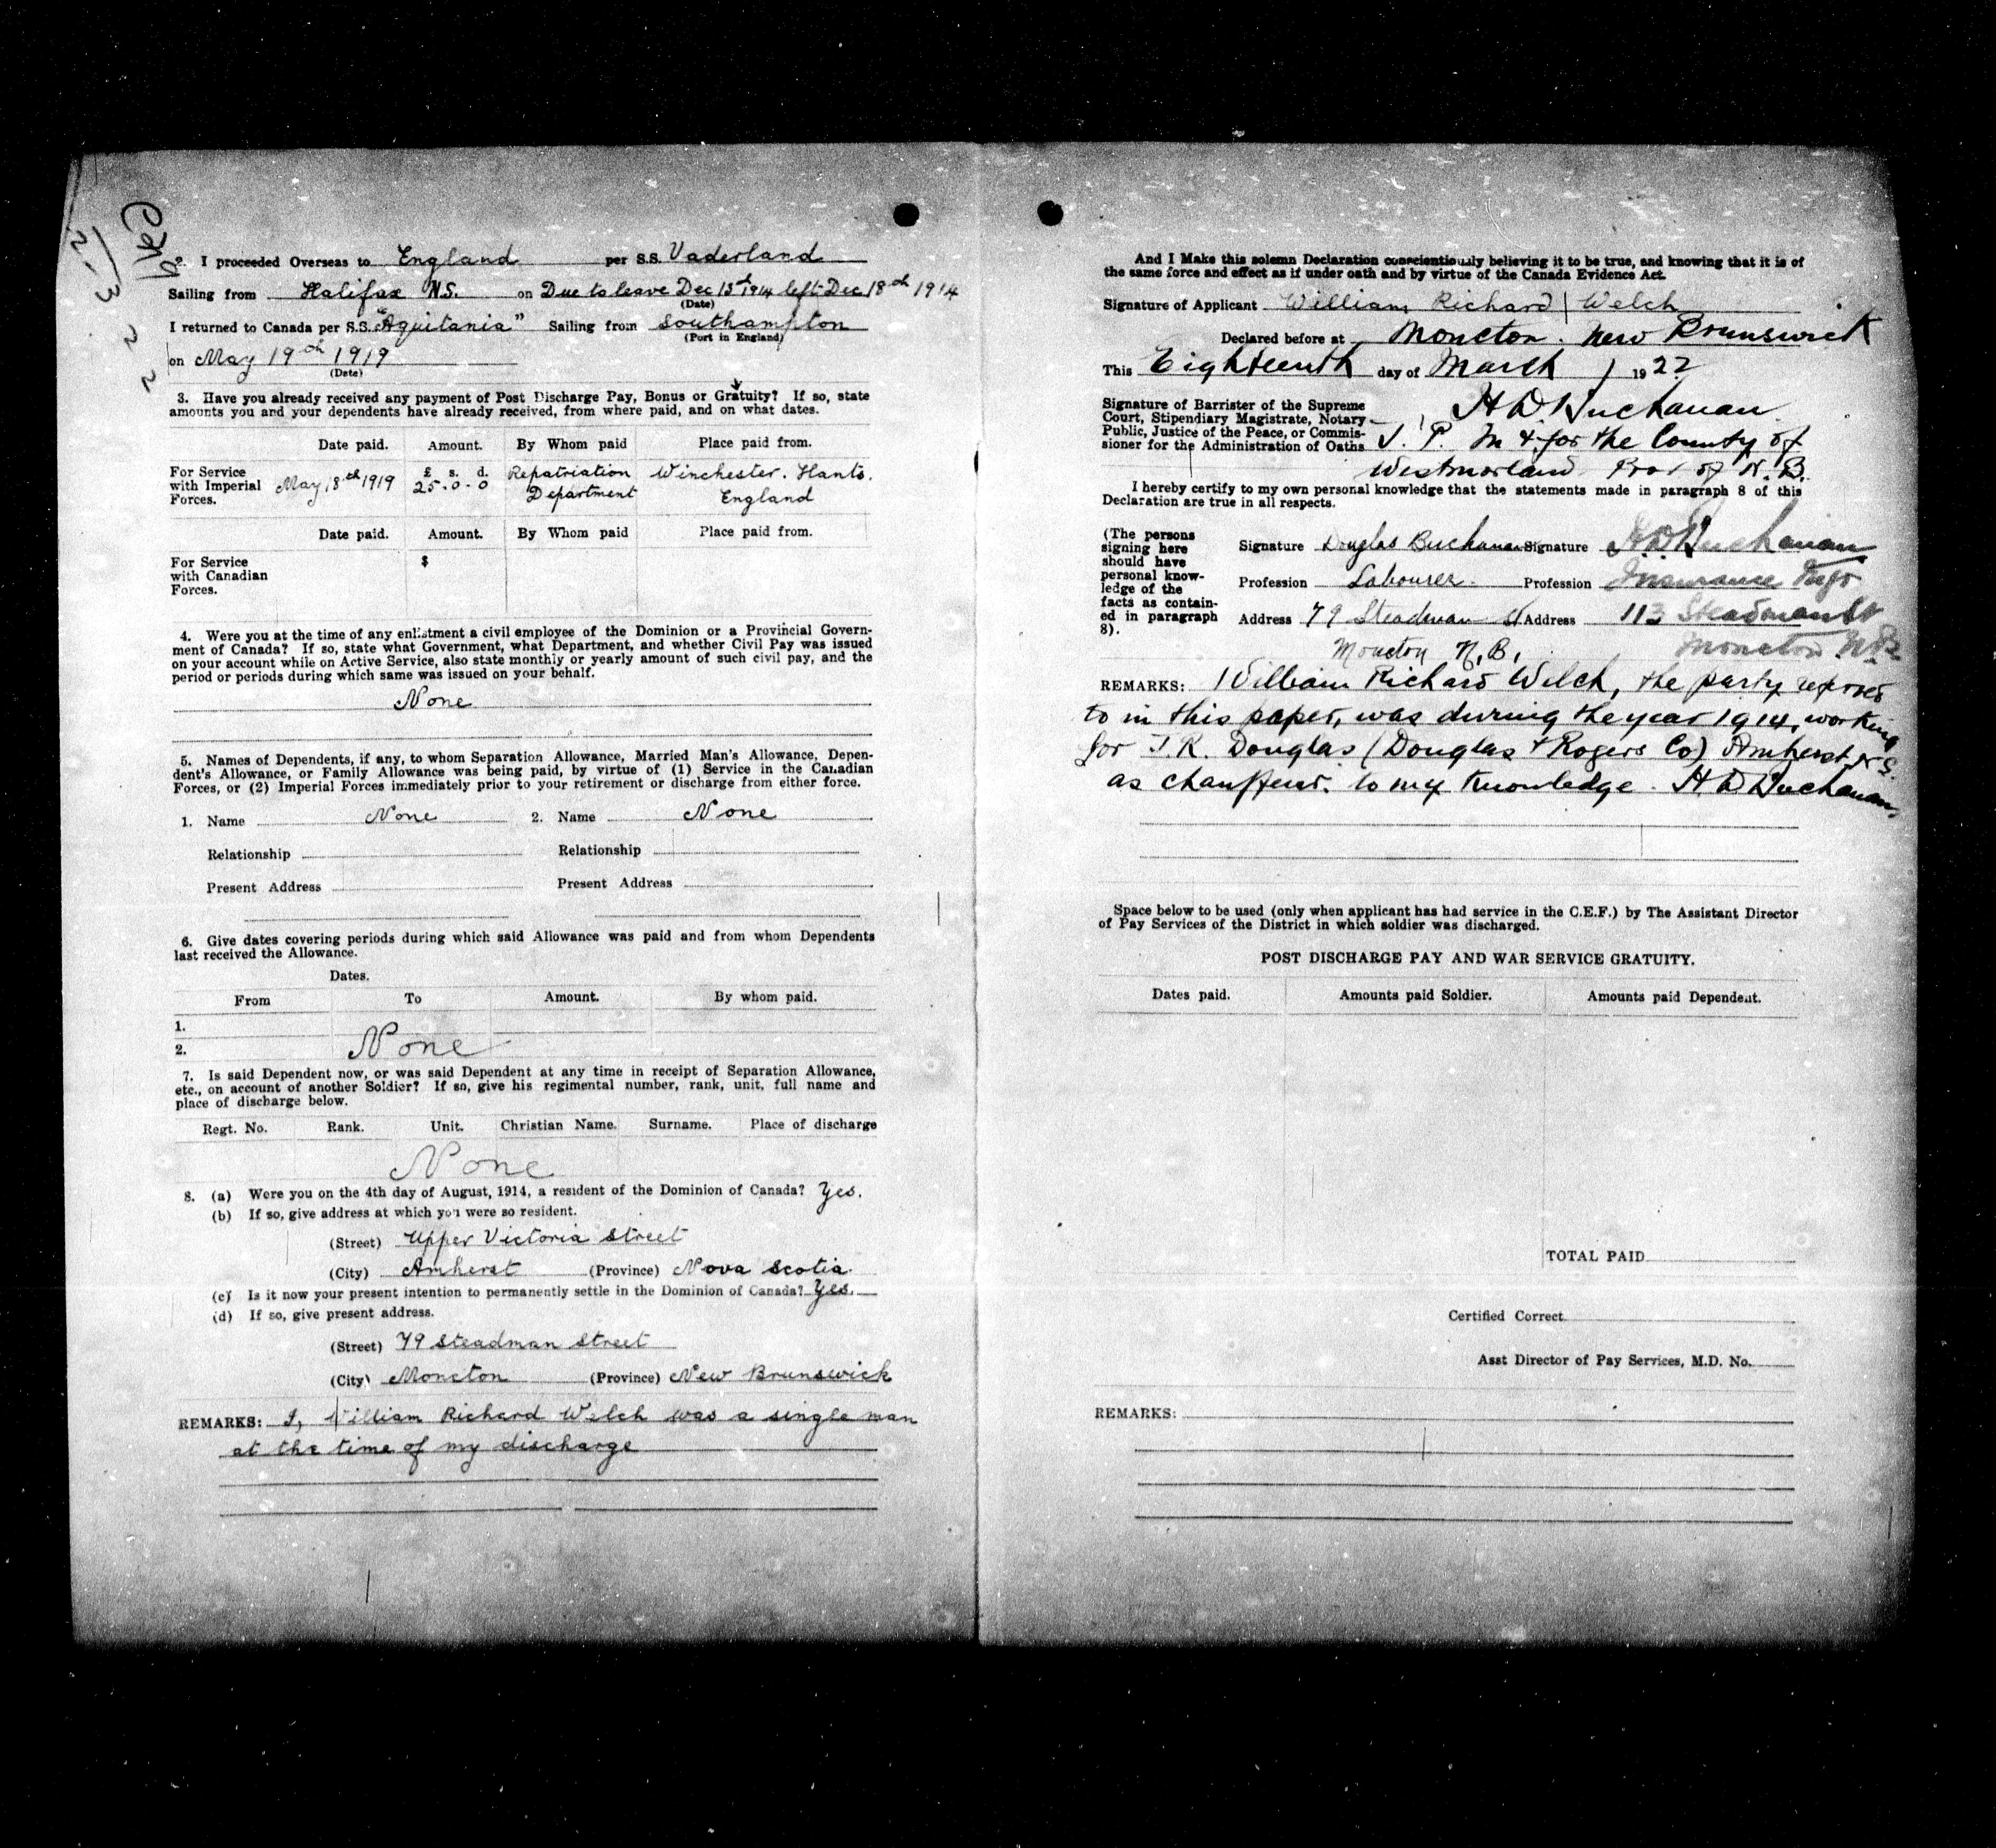 2. I proceeded Overseas to England per S.S. Vaderland
Sailing from Halifax N.S. on Due to leave Dec 13th 1914 left Dec 18th 1914
(Date)
I returned to Canada per S.S. "Aquitania" Sailing from Southampton
(Port in England)
on May 19th 1919
(Date)
3. Have you already received any payment of Post Discharge Pay, Bonus or Gratuity? If so, state
amounts you and your dependents have already received, from where paid, and on what dates.
Date paid. Amount. By Whom paid Place paid from.
For Service
with Imperial
Forces.
May 18th 1919
£ s. d.
25.0.0
Repatriation
Department
Winchester. Hants.
England
Date paid. Amount. By Whom paid Place paid from.
For Service
with Canadian
Forces.
$
4. Were you at the time of any enlistment a civil employee of the Dominion or a Provincial Govern-
ment of Canada? If so, state what Government, what Department, and whether Civil Pay was issued
on your account while on Active Service, also state monthly or yearly amount of such civil pay, and the
period or periods during which same was issued on your behalf.
None
5. Names of Dependents, if any, to whom Separation Allowance, Married Man's Allowance, Depen-
dent's Allowance, or Family Allowance was being paid, by virtue of (1) Service in the Canadian
Forces, or (2) Imperial Forces immediately prior to your retirement or discharge from either force.
1. Name None 2. Name None
Relationship Relationship
Present Address Present Address
6. Give dates covering periods during which said Allowance was paid and from whom Dependents
last received the Allowance.
Dates.
From To Amount. By whom paid.
1.
2. None
7. Is said Dependent now, or was said Dependent at any time in receipt of Separation Allowance,
etc., on account of another Soldier? If so, give his regimental number, rank, unit, full name and
place of discharge below.
Regt. No. Rank. Unit. Christian Name. Surname. Place of discharge
None
8. (a) Were you on the 4th day of August, 1914, a resident of the Dominion of Canada? Yes.
(b) If so, give address at which you were so resident.
(Street) Upper Victoria Street
(City) Amherst (Province) Nova Scotia.
(c) Is it now your present intention to permanently settle in the Dominion of Canada? Yes.
(d) If so, give present address.
(Street) 79 Steadman Street
(City) Moncton (Province) New Brunswick
REMARKS: I, William Richard Welch was a single man
at the time of my discharge
And I Make this solemn Declaration conscientiously believing it to be true, and knowing that it is of
the same force and effect as if under oath and by virtue of the Canada Evidence Act.
Signature of Applicant William Richard Welch
Declared before at Moncton. New Brunswick
This Eighteenth day of March 1922
Signature of Barrister of the Supreme
Court, Stipendiary Magistrate, Notary
Public, Justice of the Peace, or Commis-
sioner for the Administration of Oaths
H D Buchanan.
J. P. In & for the County of
Westmorland Prov of N. B.
I hereby certify to my own personal knowledge that the statements made in paragraph 8 of this
Declaration are true in all respects.
(The persons
signing here
should have
personal know-
ledge of the
facts as contain-
ed in paragraph
8).
Signature Douglas Buchanan Signature H D Buchanan
Profession Labourer. Profession Insurance
Address 79 Steadman St Address 113 Steadman St
Moncton N.B. Moncton N.B.
REMARKS: William Richard Welch, the party refered
to in this paper, was during the year 1914, working
for J. K. Douglas (Douglas & Rogers Co) Amherst N S.
as chauffeur. to my Knowledge. H D Buchanan.
Space below to be used (only when applicant has had service in the C.E.F.) by The Assistant Director
of Pay Services of the District in which soldier was discharged.
POST DISCHARGE PAY AND WAR SERVICE GRATUITY.
Dates paid. Amounts paid Soldier. Amounts paid Dependent.
TOTAL PAID
Certified Correct
Asst Director of Pay Services, M.D. No.
REMARKS: